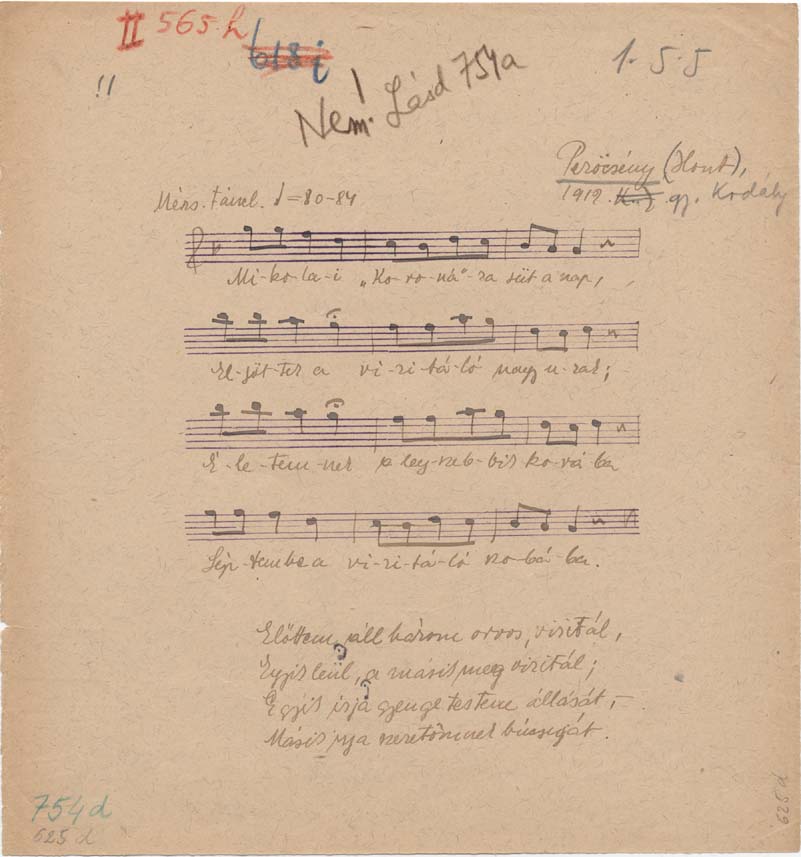 II 565 h
618 i
!!
Nem! Lásd 754a
1·5·5
Perőcsény (Hont),
1912. K. Z. gy. Kodály
Mérs. táncl. ♩=80-84
Mi-ko-la-i „Ko-ro-ná"-ra süt a nap,
El-jöt-tek a vi-zi-tá-ló nagy u-rak;
É-le-tem-nek a leg-szeb-bik ko-rá-ba
Lép-tem be a vi-zi-tá-ló szo-bá-ba.
Előttem áll három orvos, vizitál,
Egyik leül, a másik meg vizitál;
Egyik irja gyenge testem állását,–
Másik irja szeretőmnek búcsuját.
754 d
625 d
625 d